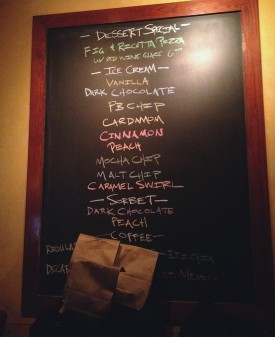 — DESSERT SPECIAL —
FIG & RICOTTA PIZZA
W/ RED WINE GLAZE
— ICE CREAM —
VANILLA
DARK CHOCOLATE
PB CHIP
CARDAMOM
CINNAMON
PEACH
MOCHA CHIP
MALT CHIP
CARAMEL SWIRL
— SORBET —
DARK CHOCOLATE
PEACH
— COFFEE —